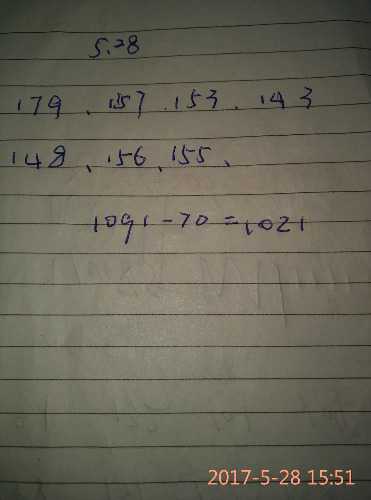 5.28
179、157、153、143
148、156、155、
1091-70=1021
2017-5-28 15:51